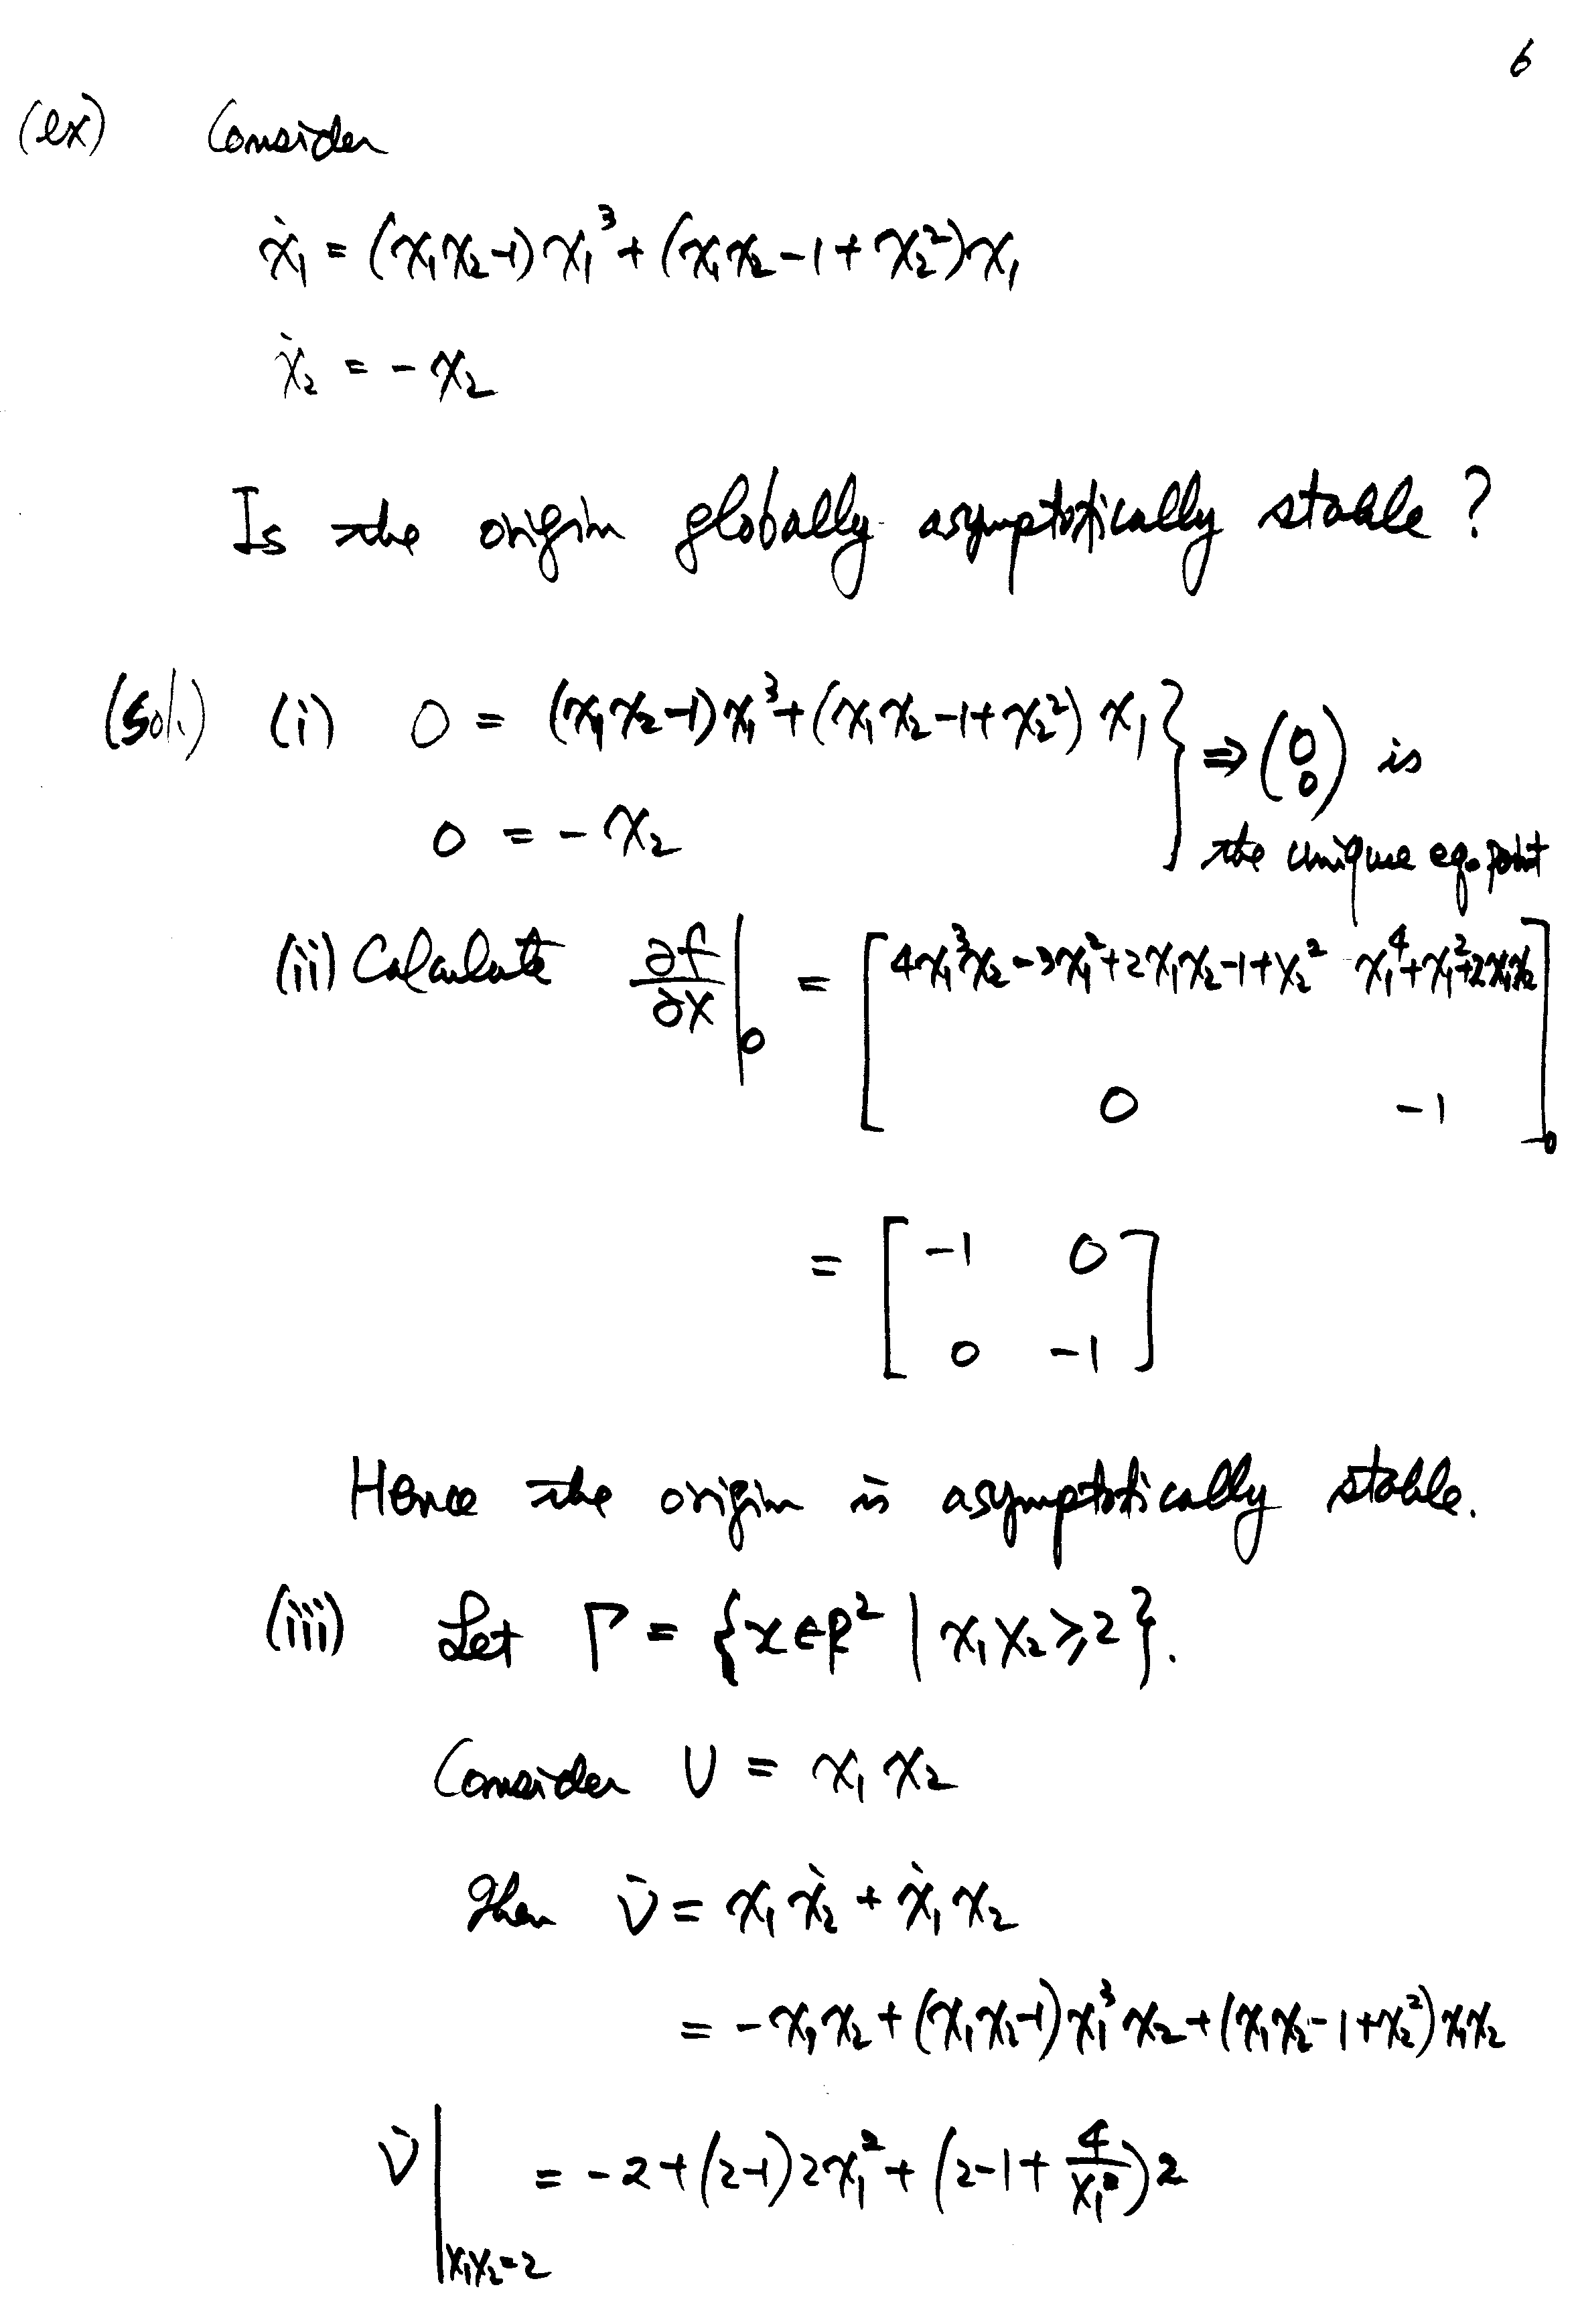 6
(ex) Consider
ẋ₁ = (x₁x₂-1)x₁³ + (x₁x₂-1+x₂²)x₁
ẋ₂ = -x₂
Is the origin globally asymptotically stable?
(Sol.) (i) 0 = (x₁x₂-1)x₁³ + (x₁x₂-1+x₂²)x₁ } ⇒ (0 0) is
0 = -x₂ the unique eq. point
(ii) Calculate ∂f/∂x |₀ = [ 4x₁³x₂-3x₁²+2x₁x₂-1+x₂² x₁⁴+x₁²+2x₁x₂
0 -1 ]₀
= [ -1 0
0 -1 ]
Hence the origin is asymptotically stable.
(iii) Let Γ = {x∈R² | x₁x₂ ≥ 2}.
Consider V = x₁x₂
Then V̇ = x₁ẋ₂ + ẋ₁x₂
= -x₁x₂ + (x₁x₂-1)x₁³x₂ + (x₁x₂-1+x₂²)x₁x₂
V̇ |x₁x₂=2 = -2 + (2-1)2x₁² + (2-1+4/x₁²)2